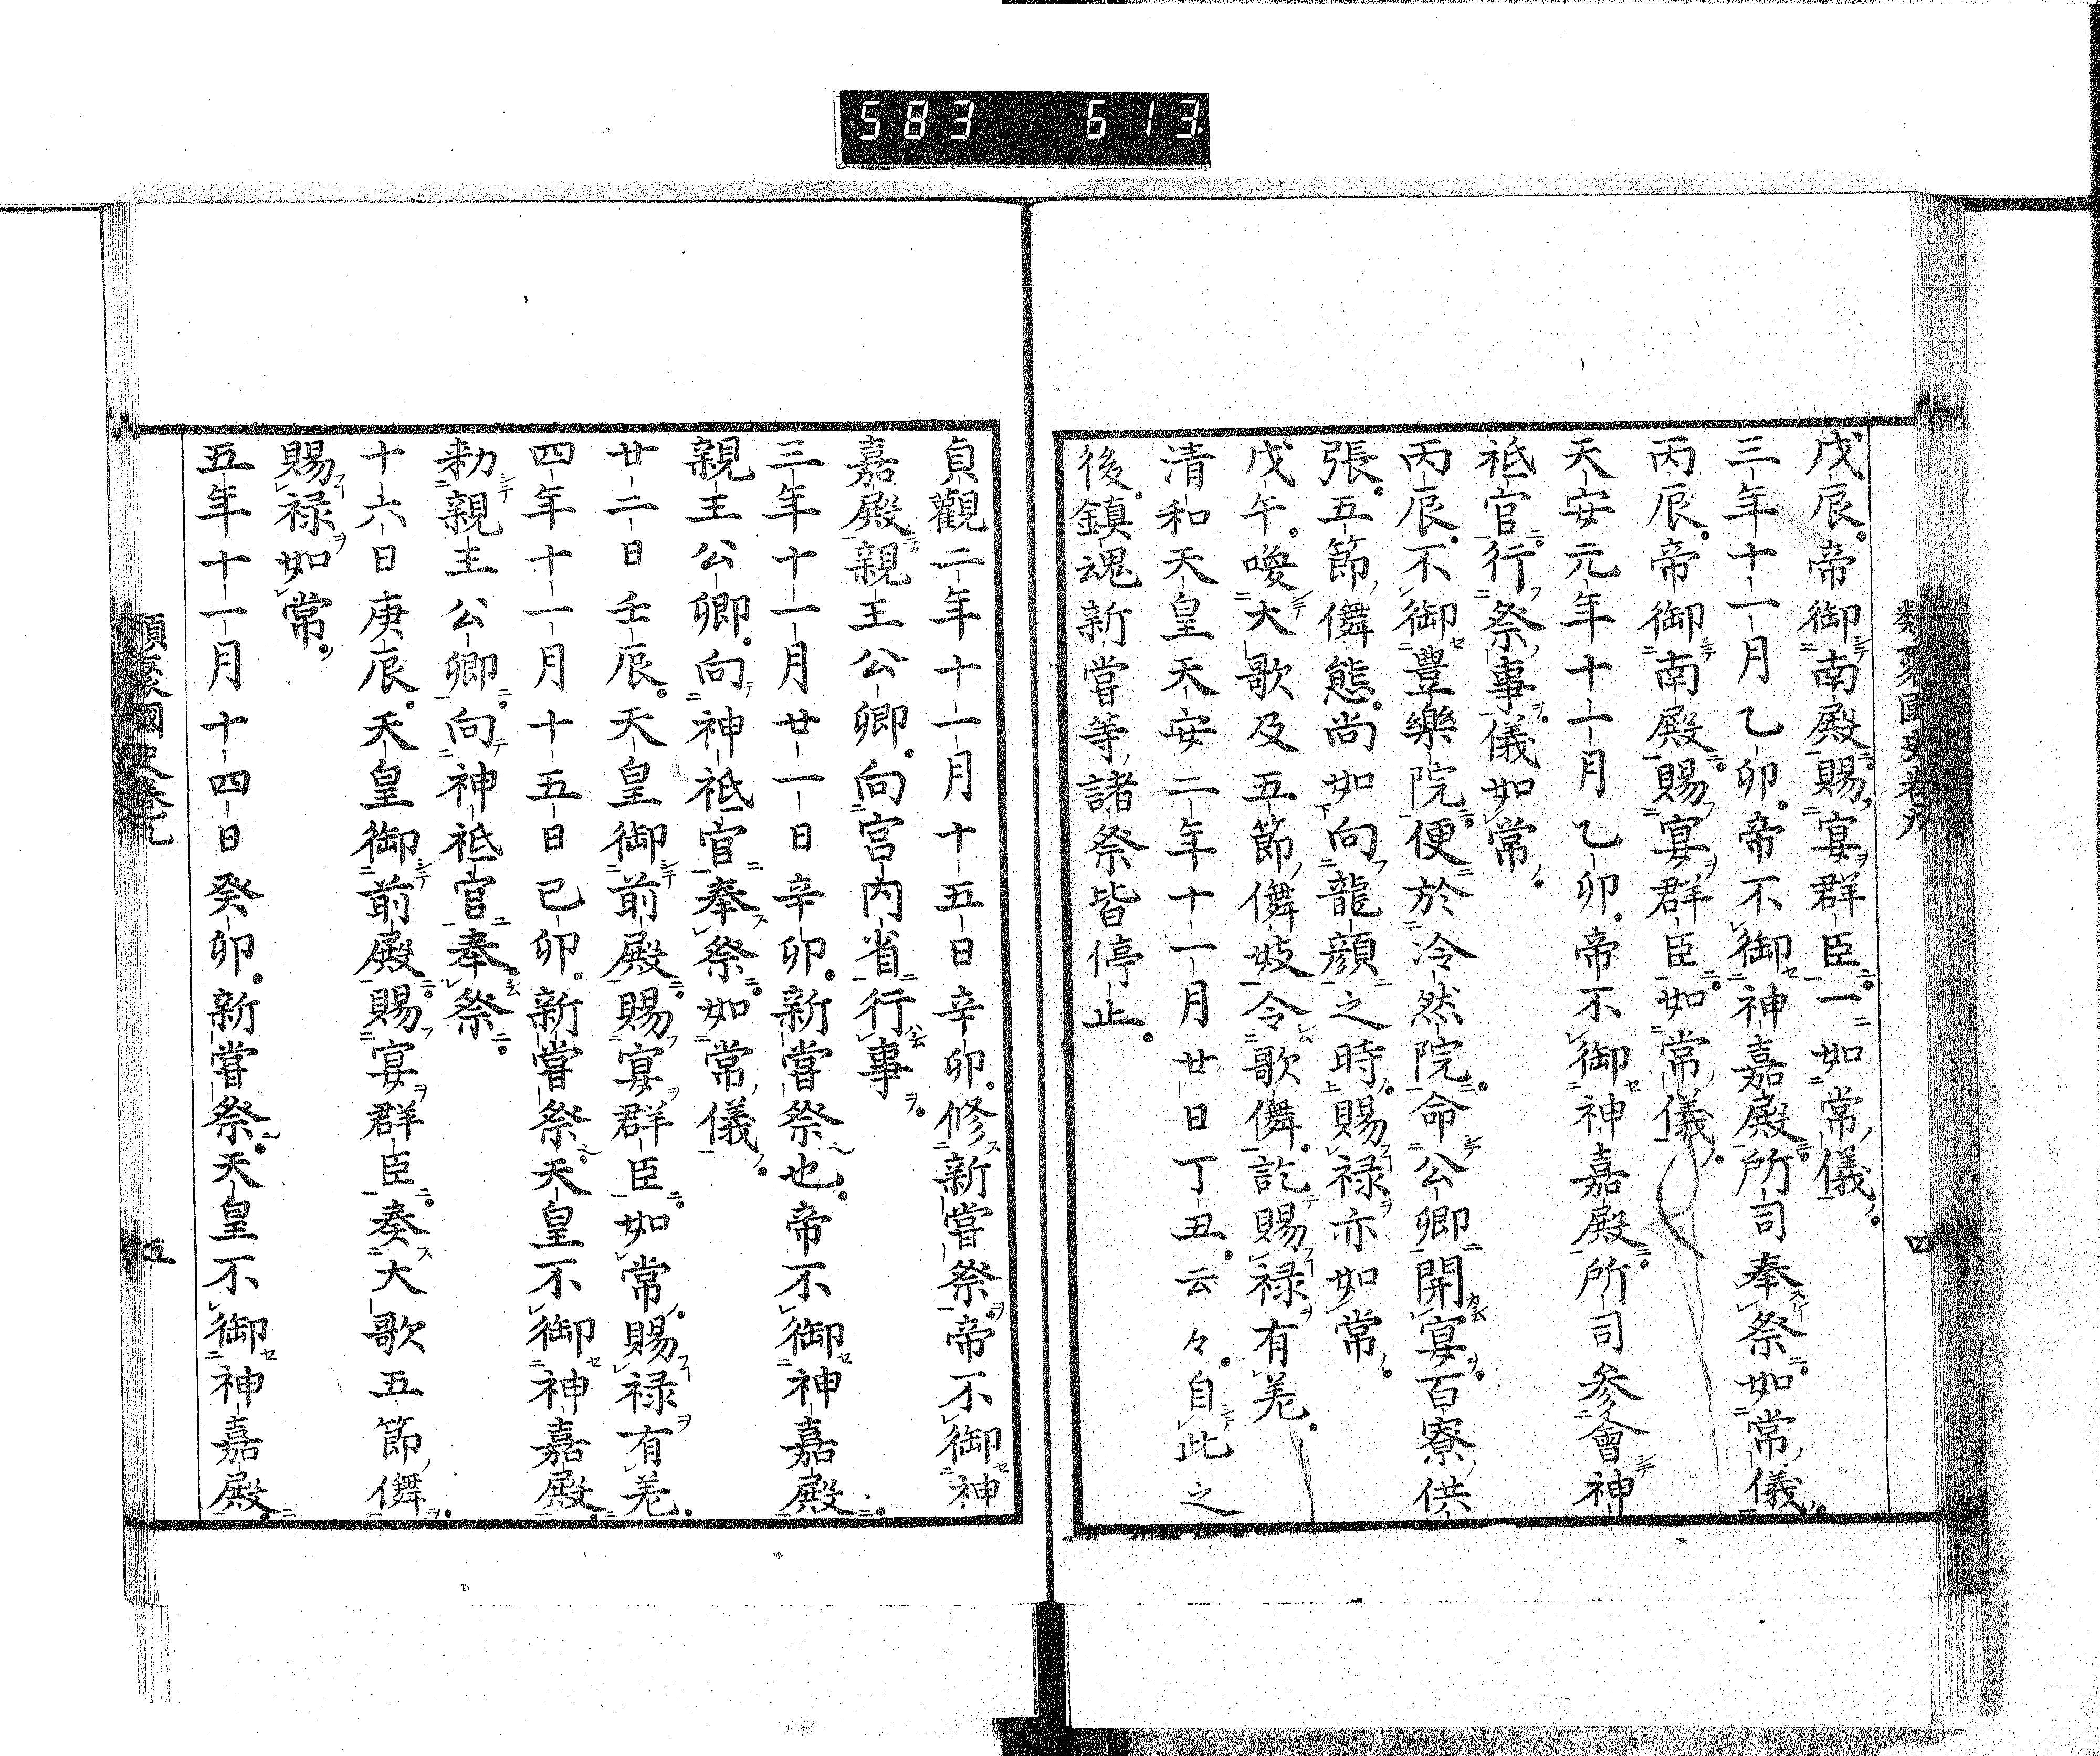 583 613
類聚國史卷九
四
戊辰帝御南殿賜宴群臣一如常儀
三年十一月乙卯帝不御神嘉殿所司奉祭如常儀
丙辰帝御南殿賜宴群臣如常儀
天安元年十一月乙卯帝不御神嘉殿所司参會神
祇官行祭事儀如常
丙辰不御豊樂院便於冷然院命公卿開宴百寮供
張五節儛態尚如向龍顔之時賜禄亦如常
戊午喚大歌及五節儛妓令歌儛訖賜禄有差
清和天皇天安二年十一月廿日丁丑云々自此之
後鎮魂新嘗等諸祭皆停止
貞觀二年十一月十五日辛卯修新嘗祭帝不御神
嘉殿親王公卿向宮内省行事
三年十一月廿一日辛卯新嘗祭也帝不御神嘉殿
親王公卿向神祇官奉祭如常儀
廿二日壬辰天皇御前殿賜宴群臣如常賜禄有差
四年十一月十五日己卯新嘗祭天皇不御神嘉殿
勅親王公卿向神祇官奉祭
十六日庚辰天皇御前殿賜宴群臣奏大歌五節儛
賜禄如常
五年十一月十四日癸卯新嘗祭天皇不御神嘉殿
類聚國史卷九
五